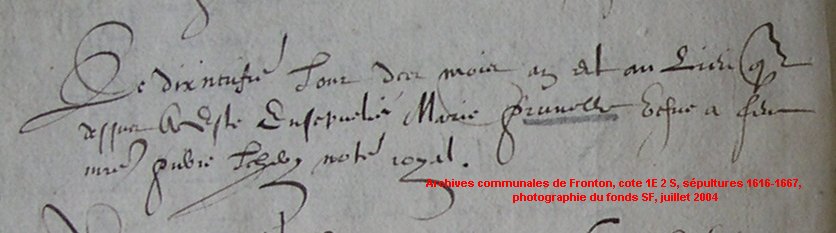 Le dixneufie Jour des mois an et au Lieu q
dessus a Este Ensepvelie Marie prunelle vefve a feu
mre notre royal.
Archives communales de Fronton, cote 1E 2 S, sépultures 1616-1667,
photographie du fonds SF, juillet 2004